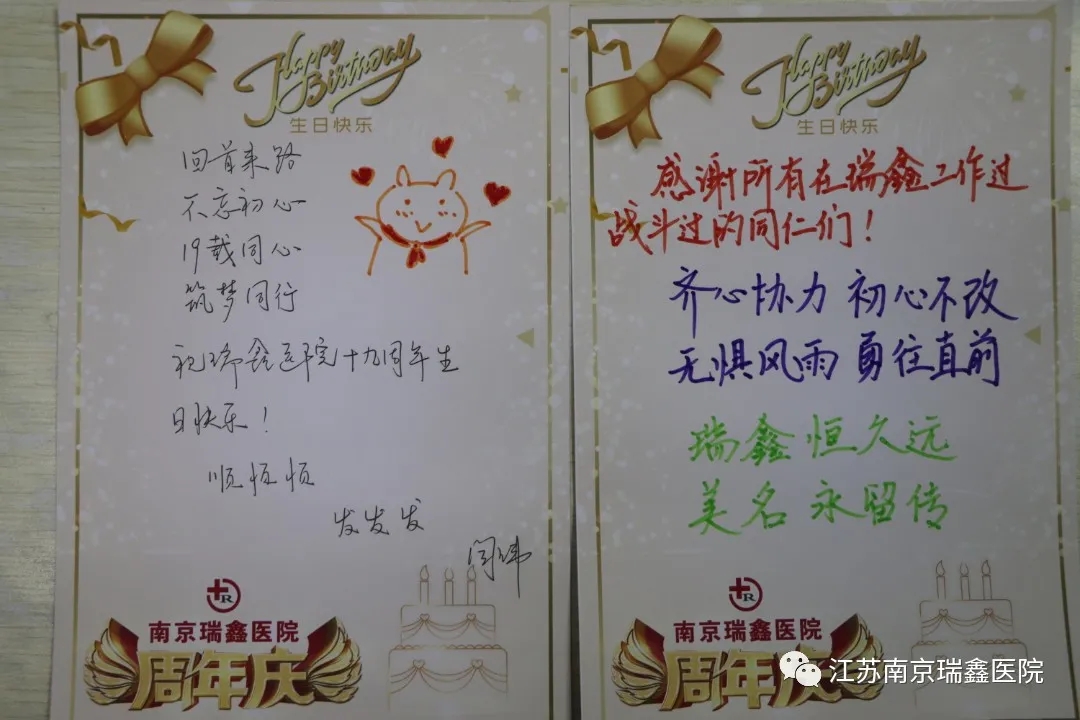 Happy
Birthday
生日快乐
回首来路
不忘初心
19载同心
筑梦同行
祝瑞鑫医院十九周年生
日快乐！
顺恒恒
发发发
闫玮
R
南京瑞鑫医院
周年庆
Happy
Birthday
生日快乐
感谢所有在瑞鑫工作过
战斗过的同仁们！
齐心协力 初心不改
无惧风雨 勇往直前
瑞鑫恒久远
美名永留传
R
南京瑞鑫医院
周年庆
江苏南京瑞鑫医院